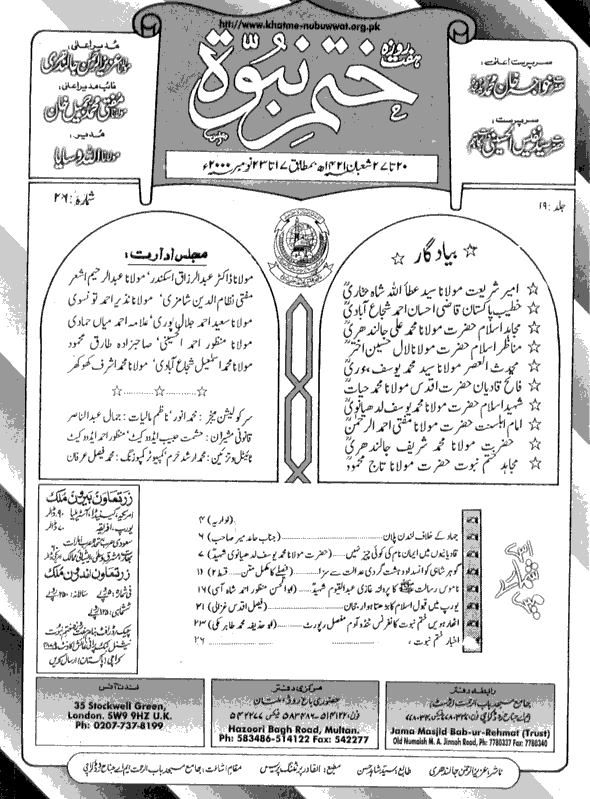 http://www.khatme-nubuwwat.org.pk
ہفت روزہ
ختم نبوۃ
۲۰ تا ۲۷ شعبان ۱۴۲۱ھ بمطابق ۱۷ تا ۲۳ نومبر ۲۰۰۰ء
سرپرست اعلیٰ:
سرپرست:
مدیر اعلیٰ:
مولانا عزیز الرحمن جالندھری
نائب مدیر اعلیٰ:
مفتی محمد جمیل خان
مدیر:
مولانا اللہ وسایا
جلد: ۱۹
شمارہ: ۲۶
☆ بیاد گار ☆
☆ امیر شریعت مولانا سید عطا اللہ شاہ بخاریؒ
☆ خطیب پاکستان قاضی احسان احمد شجاع آبادیؒ
☆ مجاہد اسلام حضرت مولانا محمد علی جالندھریؒ
☆ مناظر اسلام حضرت مولانا لال حسین اخترؒ
☆ محدث العصر مولانا سید محمد یوسف بنوریؒ
☆ فاتح قادیان حضرت اقدس مولانا محمد حیاتؒ
☆ شہید اسلام حضرت مولانا محمد یوسف لدھیانویؒ
☆ امام اہلسنت حضرت مولانا مفتی احمد الرحمنؒ
☆ حضرت مولانا محمد شریف جالندھریؒ
☆ مجاہد ختم نبوت حضرت مولانا تاج محمودؒ
مجلس ادارت:
مولانا ڈاکٹر عبدالرزاق اسکندر، مولانا عبدالرحیم اشعر
مفتی نظام الدین شامزی، مولانا نذیر احمد تونسوی
مولانا سعید احمد جلال پوری، علامہ احمد میاں حمادی
مولانا منظور احمد الحسینی، صاحبزادہ طارق محمود
مولانا محمد اسمٰعیل شجاع آبادی، مولانا محمد اشرف کھوکھر
☆..........☆..........☆
سرکولیشن منیجر: محمد انور، ناظم مالیات: جمال عبدالناصر
قانونی مشیران: حشمت حبیب ایڈووکیٹ، منظور احمد ایڈووکیٹ
ٹائٹل و تزئین: محمد ارشد خرم، کمپیوٹر کمپوزنگ: محمد فیصل عرفان
(اداریہ) ۴
جہاد کے خلاف لندن پلان (جناب حامد میر صاحب) ۶
قادیانیوں میں ایمان نام کی کوئی چیز نہیں (حضرت مولانا محمد یوسف لدھیانوی شہیدؒ) ۷
گوہر شاہی کو انسداد دہشت گردی عدالت سے سزا (فیصلے کا مکمل متن قسط ۲) ۱۱
ناموس رسالت ﷺ کا پروانہ غازی عبدالقیوم شہیدؒ ۱۶
یورپ میں قبول اسلام کا بڑھتا ہوا رجحان (فیصل قدس غزالی) ۲۱
اٹھارہویں ختم نبوت کانفرنس ٹنڈو آدم مفصل رپورٹ (ابو حذیفہ محمد طاہر مکی) ۲۳
اخبار ختم نبوت ۲۶
زر تعاون بیرون ملک
امریکہ، کینیڈا، آسٹریلیا ۹۰ ڈالر
یورپ، افریقہ ۷۰ ڈالر
زر تعاون اندرون ملک
کراچی (پاکستان) ارسال کریں
لندن آفس
35 Stockwell Green,
London. SW9 9HZ U.K.
Ph: 0207-737-8199
مرکزی دفتر
حضوری باغ روڈ، ملتان
فون: ۵۱۴۱۲۲-۵۸۳۴۸۶ فیکس: ۵۴۲۲۷۷
Hazoori Bagh Road, Multan.
Ph: 583486-514122 Fax: 542277
رابطہ دفتر
جامع مسجد باب الرحمت (ٹرسٹ)
Jama Masjid Bab-ur-Rehmat (Trust)
Old Numaish M. A. Jinnah Road, Ph: 7780337 Fax: 7780340
ناشر: عزیز الرحمن جالندھری طابع: سید شاہد حسن مطبع: القادر پرنٹنگ پریس مقام اشاعت: جامع مسجد باب الرحمت ایم اے جناح روڈ کراچی